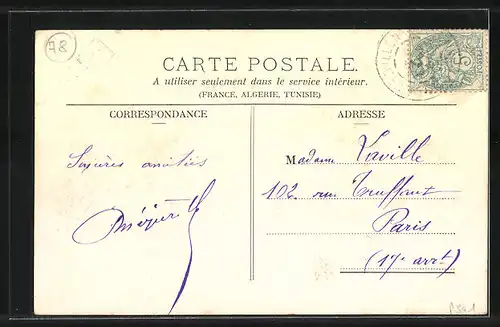 78
CARTE POSTALE.
A utiliser seulement dans le service intérieur.
(FRANCE, ALGERIE, TUNISIE)
CORRESPONDANCE
ADRESSE
amitiés
Madame Vaville
102 rue Truffaut
Paris
(17e arrt)